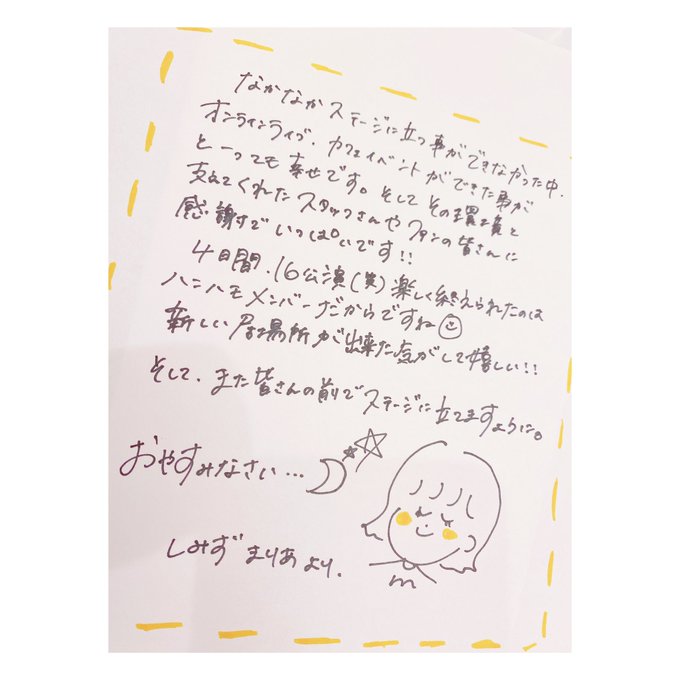 なかなかステージに立つ事ができなかった中、
オンラインライブ・カフェイベントができた事が
とーっても幸せです。そしてその環境と
支えてくれたスタッフさんやファンの皆さんに
感謝でいっぱいです!!
4日間、16公演(笑)楽しく終えられたのは
ハニハモメンバーだからですね
新しい居場所が出来た気がして嬉しい!!
そして、また皆さんの前でステージに立てますように。
おやすみなさい…
しみず まりあ より.
m